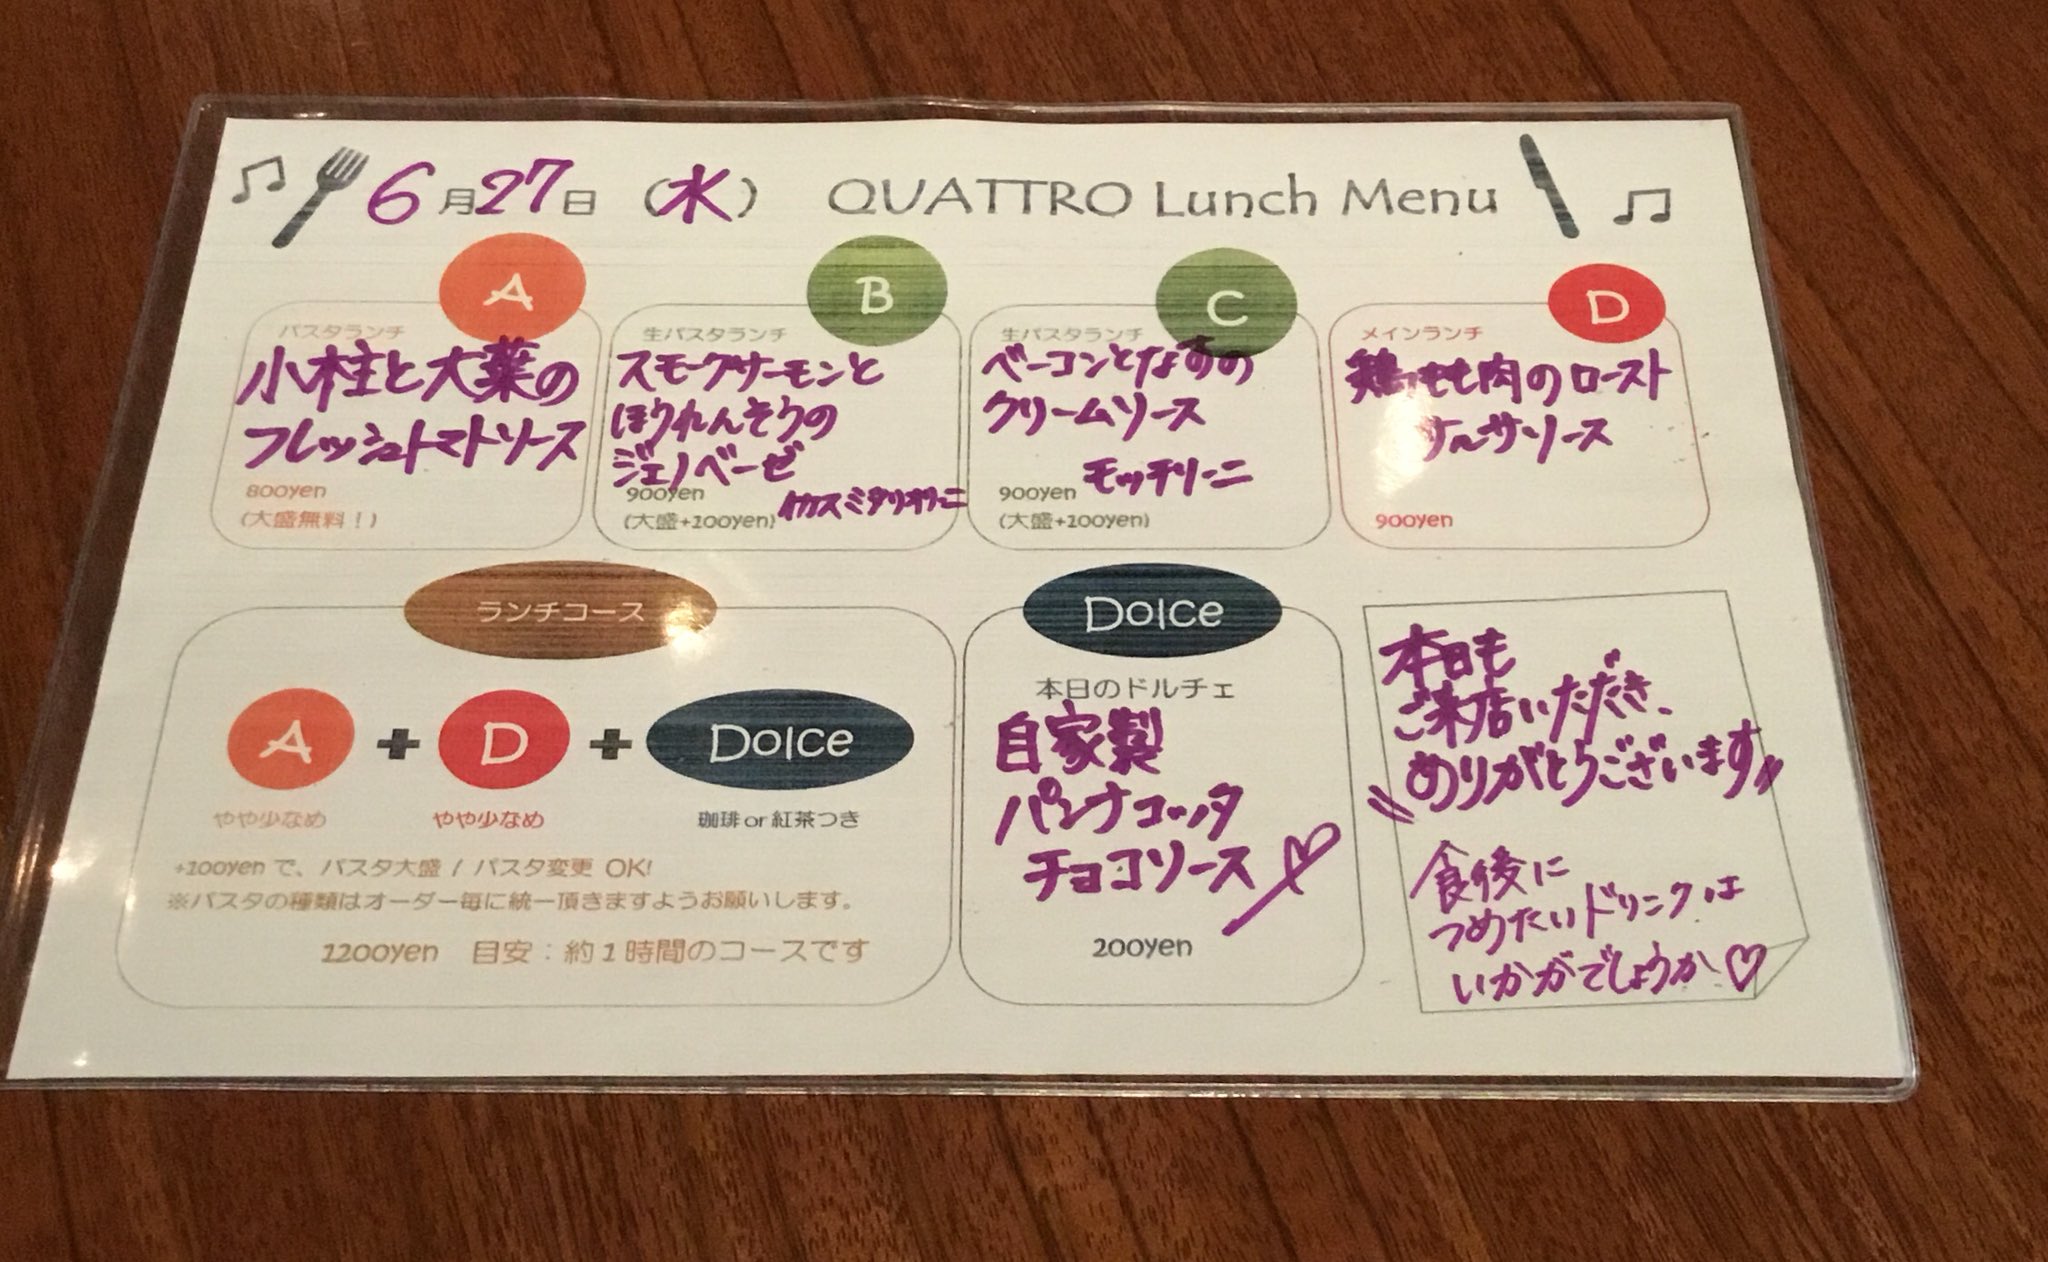 6月27日 (水) QUATTRO Lunch Menu
A
パスタランチ
小柱と大葉の
フレッシュトマトソース
800yen
(大盛無料！)
B
生パスタランチ
スモークサーモンと
ほうれんそうの
ジェノベーゼ
900yen
(大盛+100yen)
C
生パスタランチ
ベーコンとなすの
クリームソース
900yen モッチリーニ
(大盛+100yen)
D
メインランチ
鶏もも肉のロースト
サルサソース
900yen
ランチコース
A + D + Dolce
やや少なめ やや少なめ 珈琲or紅茶つき
+100yenで、パスタ大盛 / パスタ変更 OK!
※パスタの種類はオーダー毎に統一頂きますようお願いします。
1200yen 目安：約1時間のコースです
Dolce
本日のドルチェ
自家製
パンナコッタ
チョコソース
200yen
本日も
ご来店いただき、
ありがとうございます
食後に
つめたいドリンクは
いかがでしょうか♡